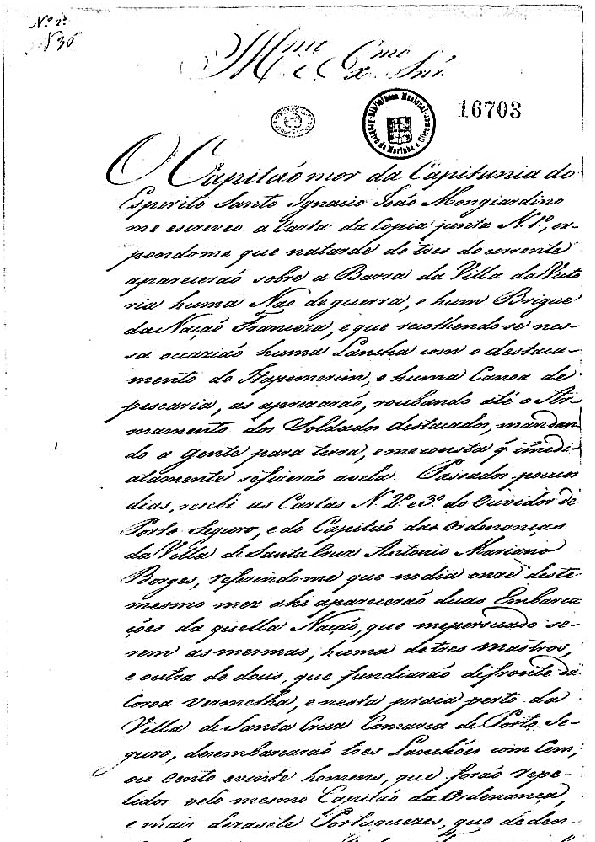 Nº 2º
N36
Illmo e Exmo Snr.
16703
O Capitaõ mor da Capitania do
Espirito Santo Ignacio Joaõ Mongiardino
me escreveo a Carta da Copia junta N. 1º, ex-
pondome que na tarde de tres do corrente
apareceraõ sobre a Barra da Villa da Victo
ria huma Nao de guerra, e hum Brigue
da Naçaõ Franceza, e que recolhendo se nes-
sa occaziaõ huma Lancha com o destaca-
mento de Itapemerim, e huma Canoa de
pescaria, as aprezaraõ, roubando até o Ar-
mamento dos Soldados destacados, mandan
do a gente para terra, e me consta q̃ imedi-
atamente sefizeraõ avella. Passados poucos
dias, recebi as Cartas N. 2º e 3º do Ouvidor de
Porto Seguro, e do Capitaõ das Ordenanças
da Villa de Santa Cruz Antonio Mariano
Borges, referindome que no dia onze deste
mesmo mez ali apareceraõ duas Embarca
ções da quella Naçaõ, que me persuado se-
rem as mesmas, huma de tres mastros,
e outra de dous, que fundiaraõ defronte da
Coroa vermelha, e nesta praia perto da
Villa de Santa Cruz Comarca de Porto Se-
guro, desembarcaraõ tres Lanchões com Cem,
ou cento e vinte homens, que foraõ repe-
lidos pelo mesmo Capitaõ da Ordenança,
e mais dezasete Portuguezes, que de den-